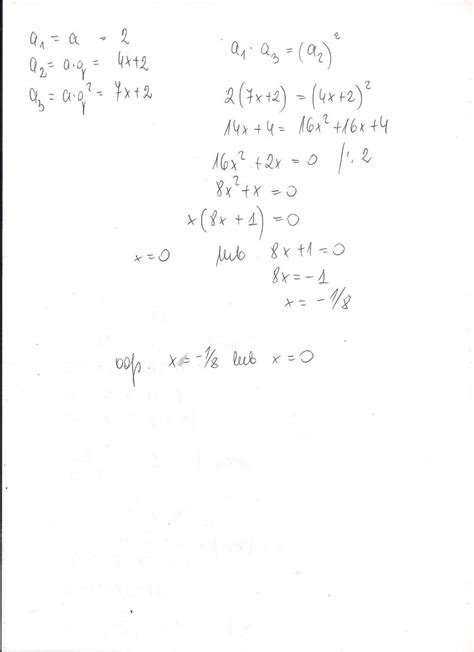 a₁ = a = 2
a₂ = a·q = 4x+2
a₃ = a·q² = 7x+2
a₁ · a₃ = (a₂)²
2(7x+2) = (4x+2)²
14x+4 = 16x²+16x+4
16x²+2x = 0 /:2
8x²+x = 0
x(8x+1) = 0
x=0 lub 8x+1=0
8x=-1
x = -1/8
odp. x = -1/8 lub x=0